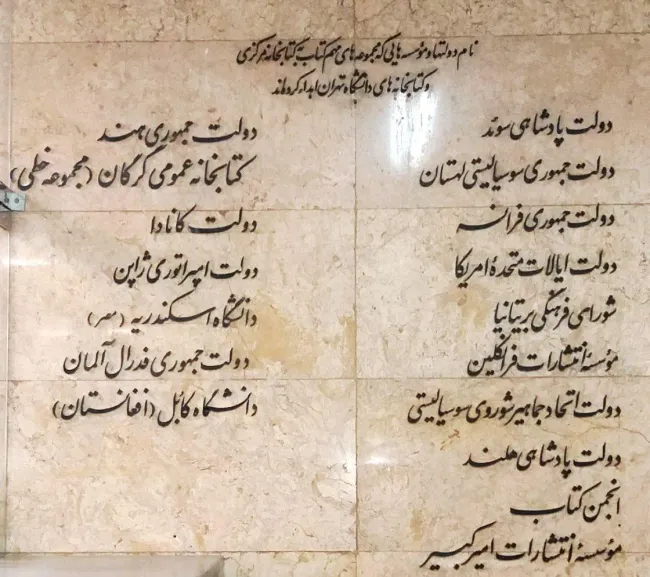 نام دولتها و مؤسسه هایی که مجموعه های مهم کتاب به کتابخانه مرکزی
و کتابخانه های دانشگاه تهران اهداء کرده‌اند
دولت پادشاهی سوئد
دولت جمهوری سوسیالیستی لهستان
دولت جمهوری فرانسه
دولت ایالات متحدهٔ امریکا
شورای فرهنگی بریتانیا
مؤسسهٔ انتشارات فرانکلین
دولت اتحاد جماهیر شوروی سوسیالیستی
دولت پادشاهی هلند
انجمن کتاب
مؤسسهٔ انتشارات امیرکبیر
دولت جمهوری هند
کتابخانه عمومی گرگان (مجموعه خطی)
دولت کانادا
دولت امپراتوری ژاپن
دانشگاه اسکندریه (مصر)
دولت جمهوری فدرال آلمان
دانشگاه کابل (افغانستان)